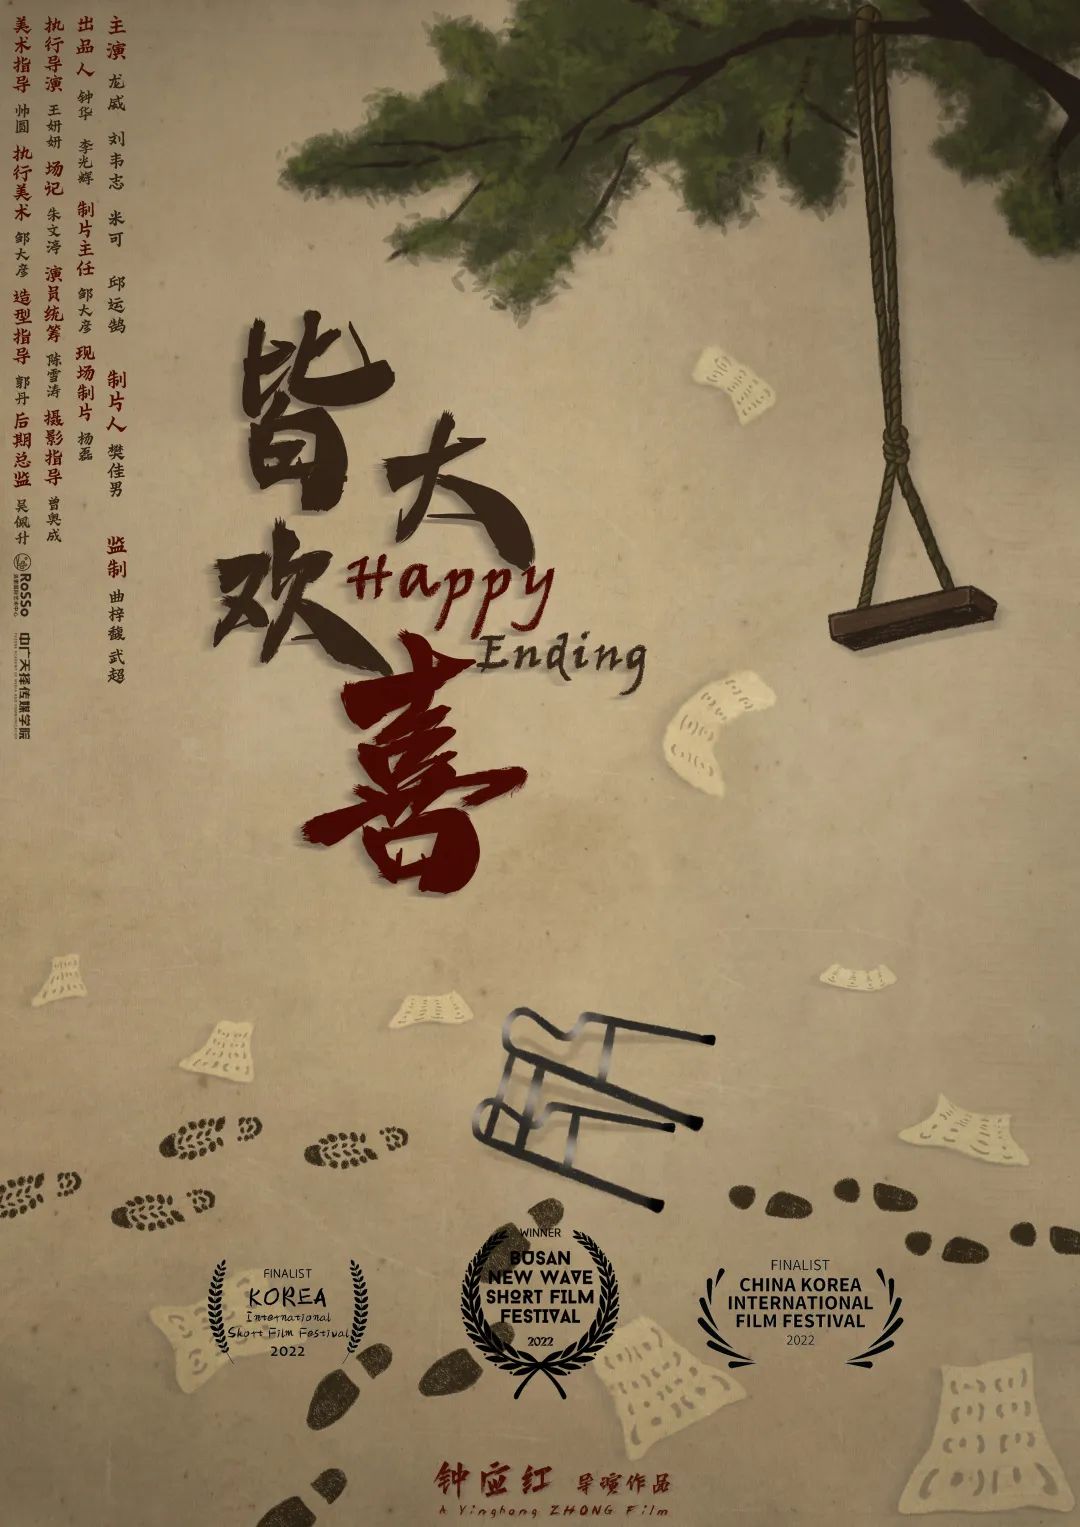 主演 龙威 刘韦志 米可 邱运鹄 制片人 樊佳男 监制 曲梓馥 武超
出品人 钟华 李光辉 制片主任 邹大彦 现场制片 杨磊
执行导演 王妍妍 场记 朱文渟 演员统筹 陈雪涛 摄影指导 曾奥成
美术指导 帅圆 执行美术 邹大彦 造型指导 郭丹 后期总监 吴佩升
RoSSo
中广天择传媒学院
皆大欢喜
Happy
Ending
FINALIST
KOREA
International
Short Film Festival
2022
WINNER
BUSAN
NEW WAVE
SHORT FILM
FESTIVAL
2022
FINALIST
CHINA KOREA
INTERNATIONAL
FILM FESTIVAL
2022
钟应红 导演作品
A Yinghong ZHONG Film